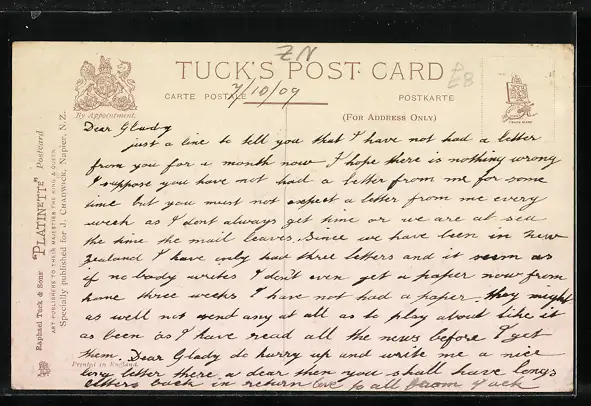 ZN
TUCK'S POST CARD
CARTE POSTALE
POSTKARTE
7/10/09
(FOR ADDRESS ONLY)
By Appointment.
TRADE MARK
Raphael Tuck & Sons' "PLATINETTE" Postcard
ART PUBLISHERS TO THEIR MAJESTIES THE KING & QUEEN.
Specially published for J. CHADWICK, Napier, N. Z.
Printed in England.
Dear Glady
just a line to tell you that I have not had a letter
from you for a month now I hope there is nothing wrong
I suppose you have not had a letter from me for some
time but you must not expect a letter from me every
week as I dont always get time or we are at sea
the time the mail leaves. Since we have been in New
Zealand I have only had three letters and it seem as
if no body writes I don't even get a paper now from
home three weeks I have not had a paper. they might
as well not send any at all as to play about like it
as been as I have read all the news before I get
them. Dear Glady do hurry up and write me a nice
long letter there a dear then you shall have long
letters back in return love to all from Jack